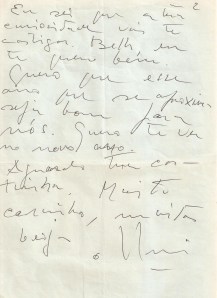 2
Eu sei que a tua
curiosidade vai te
castigar. Beth eu
te quero bem.
Quero que esse
ano que se aproxima
seja bom para
nós. Quero te ver
no novo ano.
Aguardo tua car-
tinha. Muito
carinho, muitos
beijos